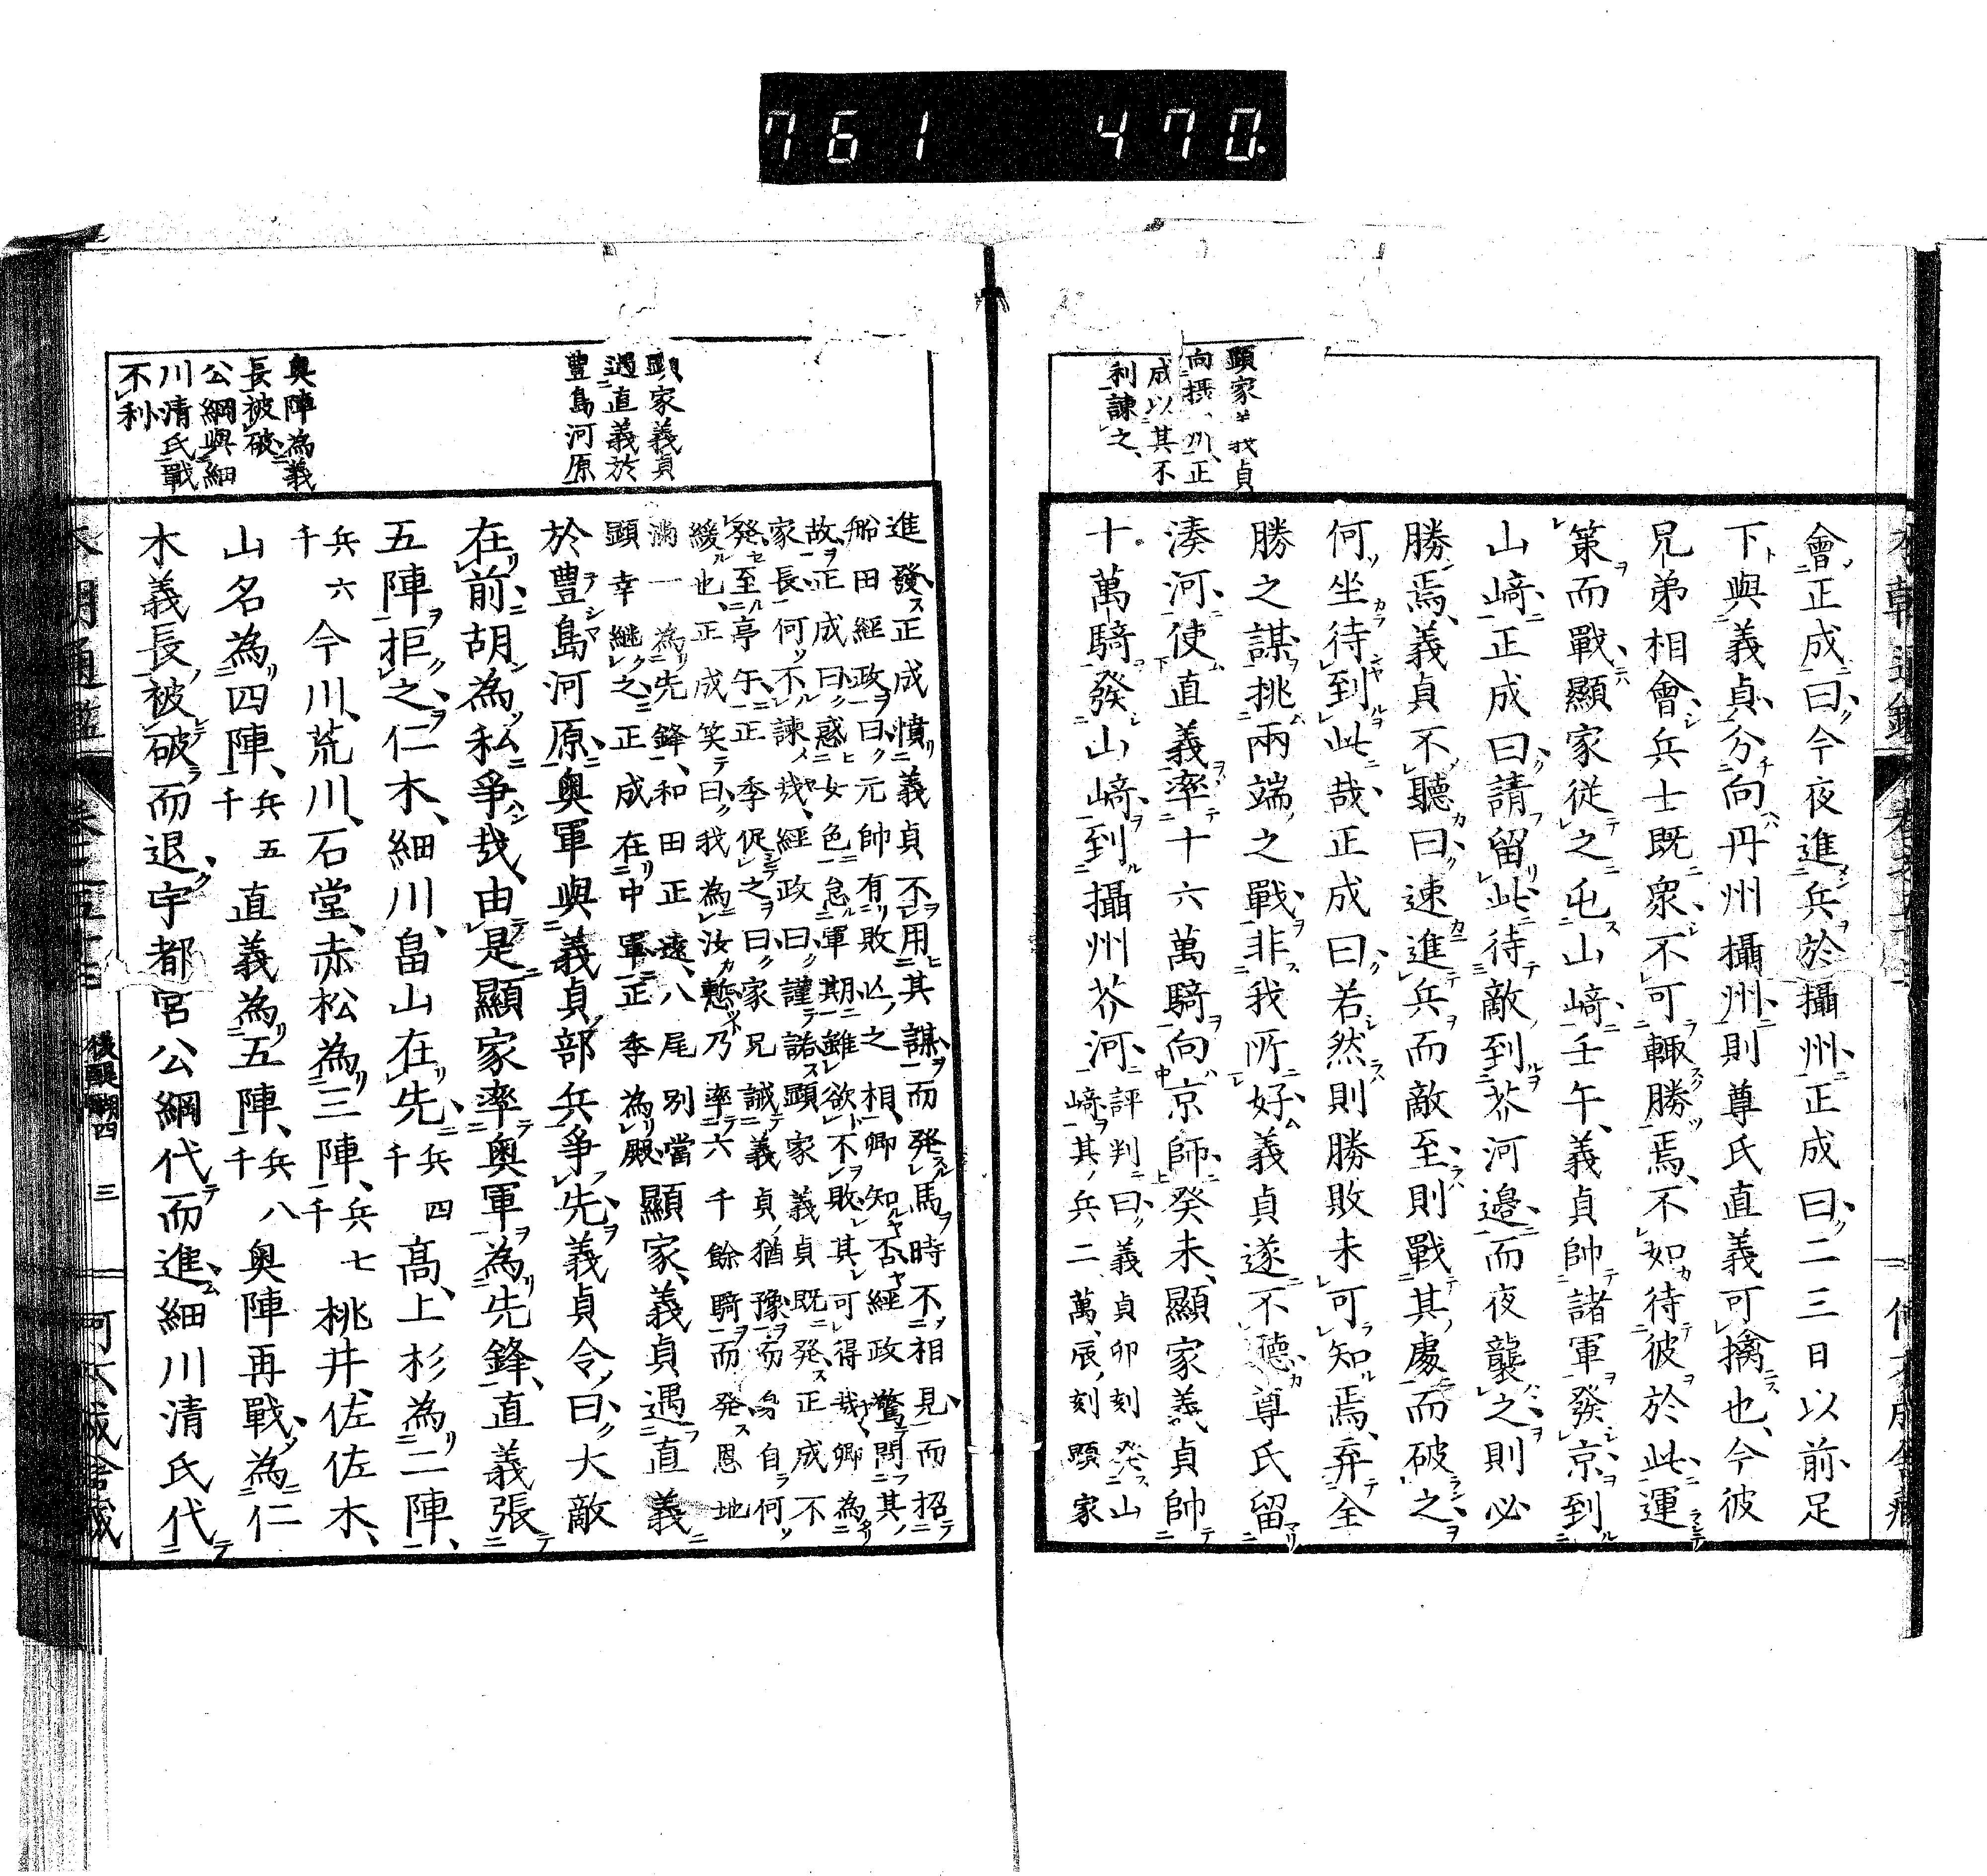 761 470.
顯家義貞
向攝州、正
成以其不
利諫之、
會正成曰今夜進兵於攝州正成曰二三日以前足
下與義貞分向丹州攝州則尊氏直義可擒也、今彼
兄弟相會兵士既衆不可輙勝焉、不如待彼於此運
策而戰顯家從之屯山﨑壬午、義貞帥諸軍發京到
山﨑正成曰請留此待敵到芥河邉而夜襲之則必
勝焉、義貞不聽曰速進兵而敵至則戰其處而破之
何坐待到此哉正成曰若然則勝敗未可知焉、弃全
勝之謀挑兩端之戰非我所好義貞遂不聽尊氏留
湊河使直義率十六萬騎向京師癸未、顯家義貞帥
十萬騎發山﨑到攝州芥河評判曰義貞卯刻発山
﨑其兵二萬、辰刻顯家
顯家義貞
遇直義於
豊島河原
奥陣為義
長被破
公綱與細
川清氏戰
不利
進發正成憤義貞不用其謀而発馬時不相見而招
船田經政曰元帥有敗亾之相卿知否經政驚問其
故正成曰惑女色怠軍期雖欲不敗其可得哉卿為
家長何不諫哉經政曰謹諾顯家義貞既発正成不
発至亭午正季促之曰家兄誡義貞猶豫而身自何
緩也、正成笑曰我為汝慙乃率六千餘騎而発恩地
滿一為先鋒、和田正遠、八尾別當
顯幸継之正成在中軍正季為殿顯家、義貞遇直義
於豊島河原奥軍與義貞部兵爭先義貞令曰大敵
在前胡為私爭哉、由是顯家率奥軍為先鋒、直義張
五陣拒之仁木、細川、畠山在先兵四千髙、上杉為二陣、
兵六千今川、荒川、石堂、赤松為三陣、兵七千桃井、佐佐木、
山名為四陣、兵五千直義為五陣、兵八千奥陣再戰為仁
木義長被破而退宇都宮公綱代而進細川清氏代
後醍醐四 三